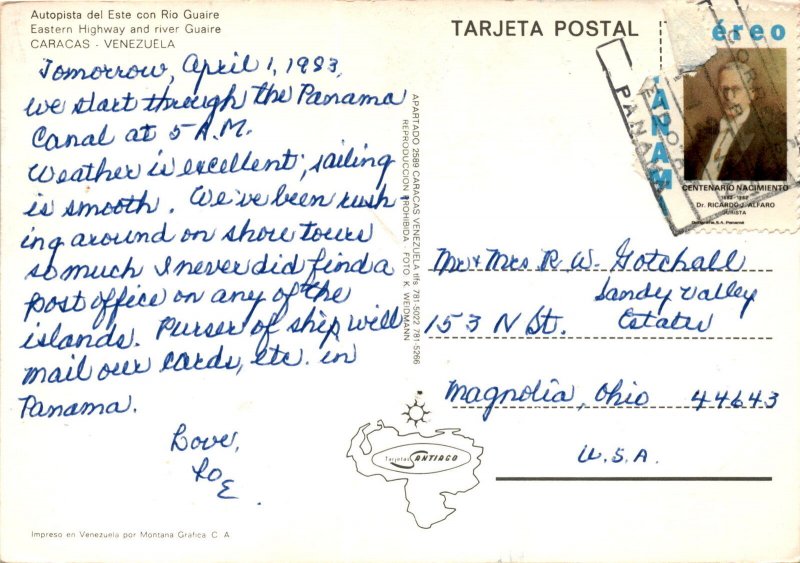 Autopista del Este con Rio Guaire
Eastern Highway and river Guaire
CARACAS - VENEZUELA
Tomorrow, April 1, 1983,
we start through the Panama
Canal at 5 A.M.
Weather is excellent; sailing
is smooth. We've been rush
ing around on shore tours
so much I never did find a
post office on any of the
islands. Purser of ship will
mail our cards, etc. in
Panama.
Love,
Impreso en Venezuela por Montana Grafica C. A
APARTADO 2589 CARACAS VENEZUELA tlfs 781-5022 781-5266
REPRODUCCION PROHIBIDA - FOTO K. WEIDMANN
TARJETA POSTAL
éreo
PANAMA
CENTENARIO NACIMIENTO
1882-1982
Dr. RICARDO J. ALFARO
JURISTA
Mr & Mrs R. W. Gotchall
Sandy Valley
153 N St. Estates
Magnolia, Ohio 44643
U.S.A.
Tarjetas SANTIAGO